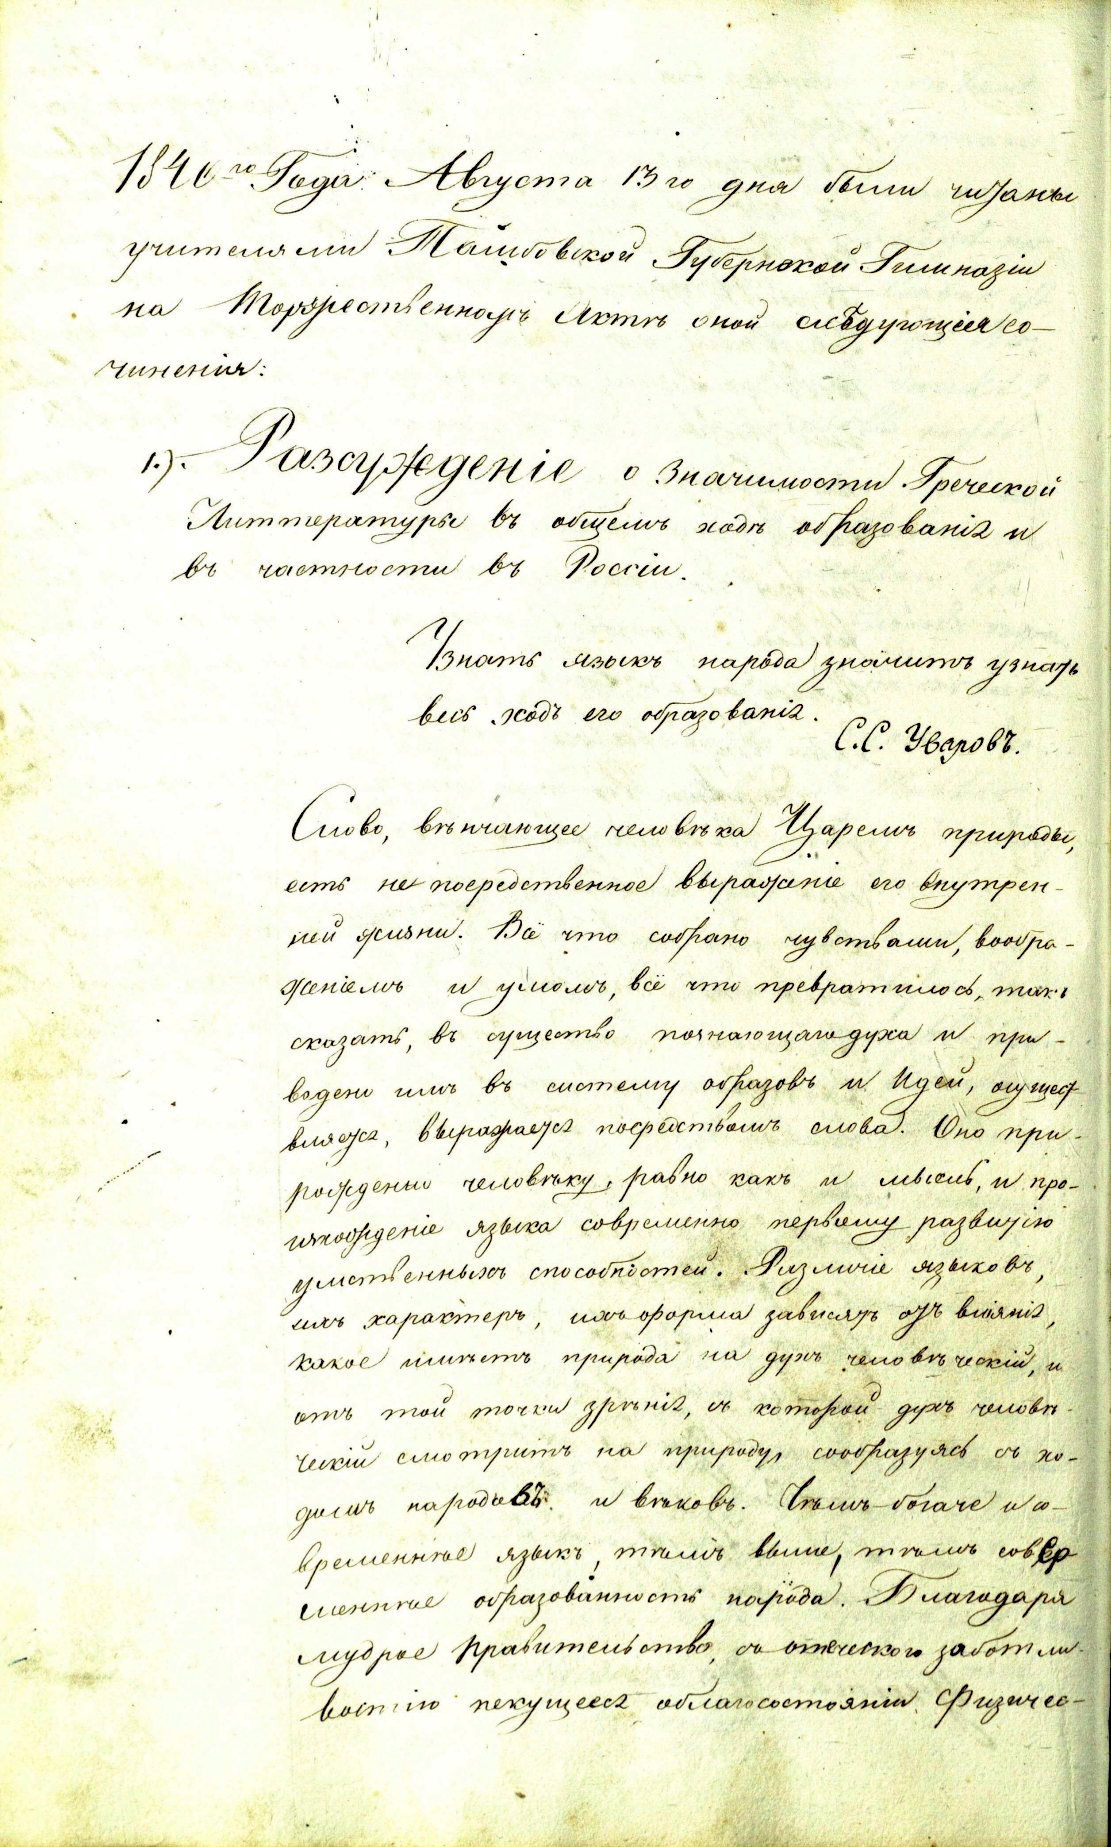 1840го Года Августа 13го дня были читаны
учителями Тамбовской Губернской Гимназіи
на Торжественномъ Актѣ оной слѣдующія со-
чиненія:
1.). Разсужденіе о Значимости Греческой
Литтературы въ общемъ ходѣ образованія и
въ частности въ Россіи.
Узнать языкъ народа значитъ узнать
весь ходъ его образованія.
С.С. Уваровъ.
Слово, вѣнчающее человѣка Царемъ природы,
есть не посредственное выраженіе его внутрен-
ней жизни. Всё что собрано чувствами, вообра-
женіемъ и умомъ, всё что превратилось, такъ
сказать, въ существо познающаго духа и при-
ведено имъ въ систему образовъ и Идей, осущест
вляется, выражается посредствомъ слова. Оно при-
рождено человѣку, равно какъ и мысль, и про-
исхожденіе языка современно первому развитію
умственныхъ способностей. Различіе языковъ,
ихъ характеръ, ихъ форма зависятъ отъ вліянія,
какое имѣетъ природа на духъ человѣческій, и
отъ той точки зрѣнія, съ которой духъ человѣ-
ческій смотритъ на природу, сообразуясь съ хо-
домъ народовъ и вѣковъ. Чѣмъ богаче и со-
временнѣе языкъ, тѣмъ выше, тѣмъ совер
шеннѣе образованность народа. Благодаря
мудрое Правительство, съ отеческого заботли-
востію пекущееся о благосостояніи Физичес-